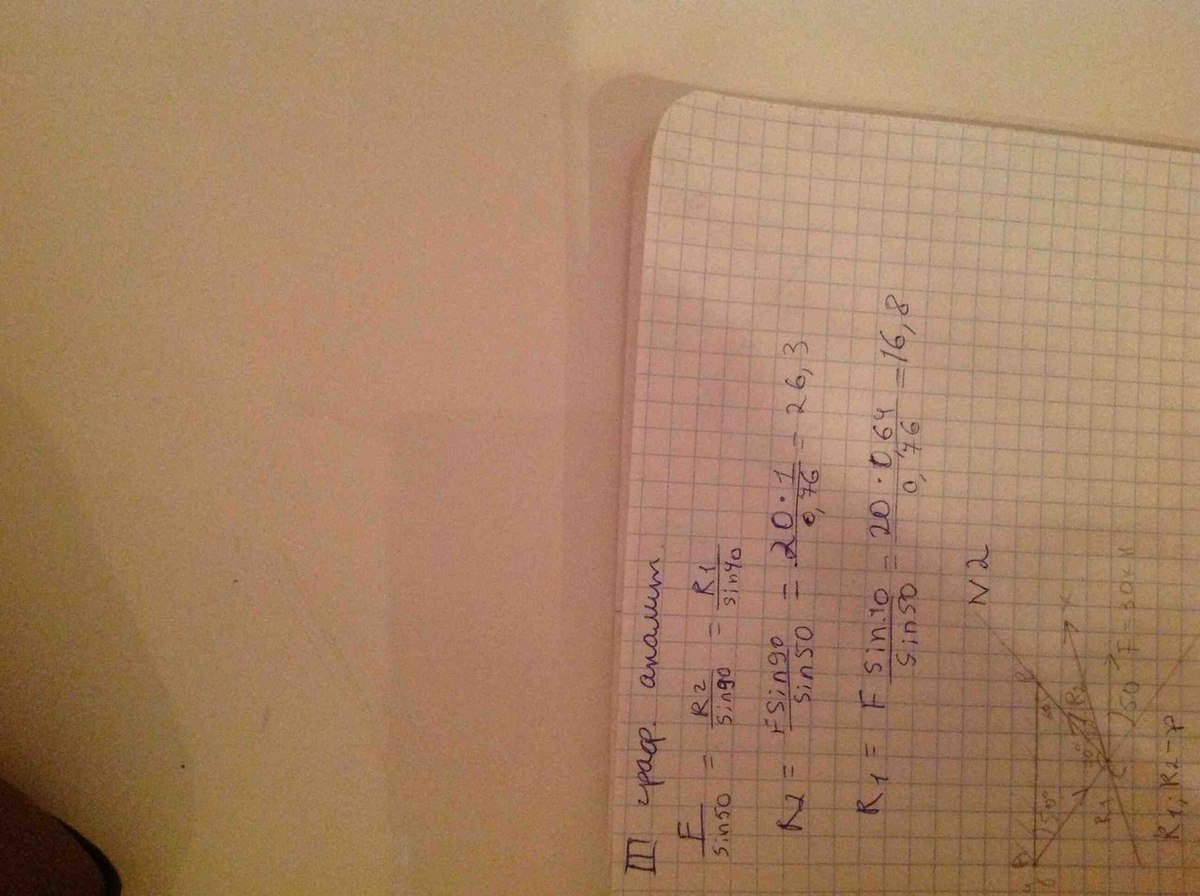 III граф. аналит.
F/sin50 = R2/sin90 = R1/sin40
R2 = Fsin90/sin50 = 20·1/0,76 = 26,3
R1 = F sin40/sin50 = 20·0,64/0,76 = 16,8
N2
50°
R1
R2
x
50° F=30кН
R1, R2-?